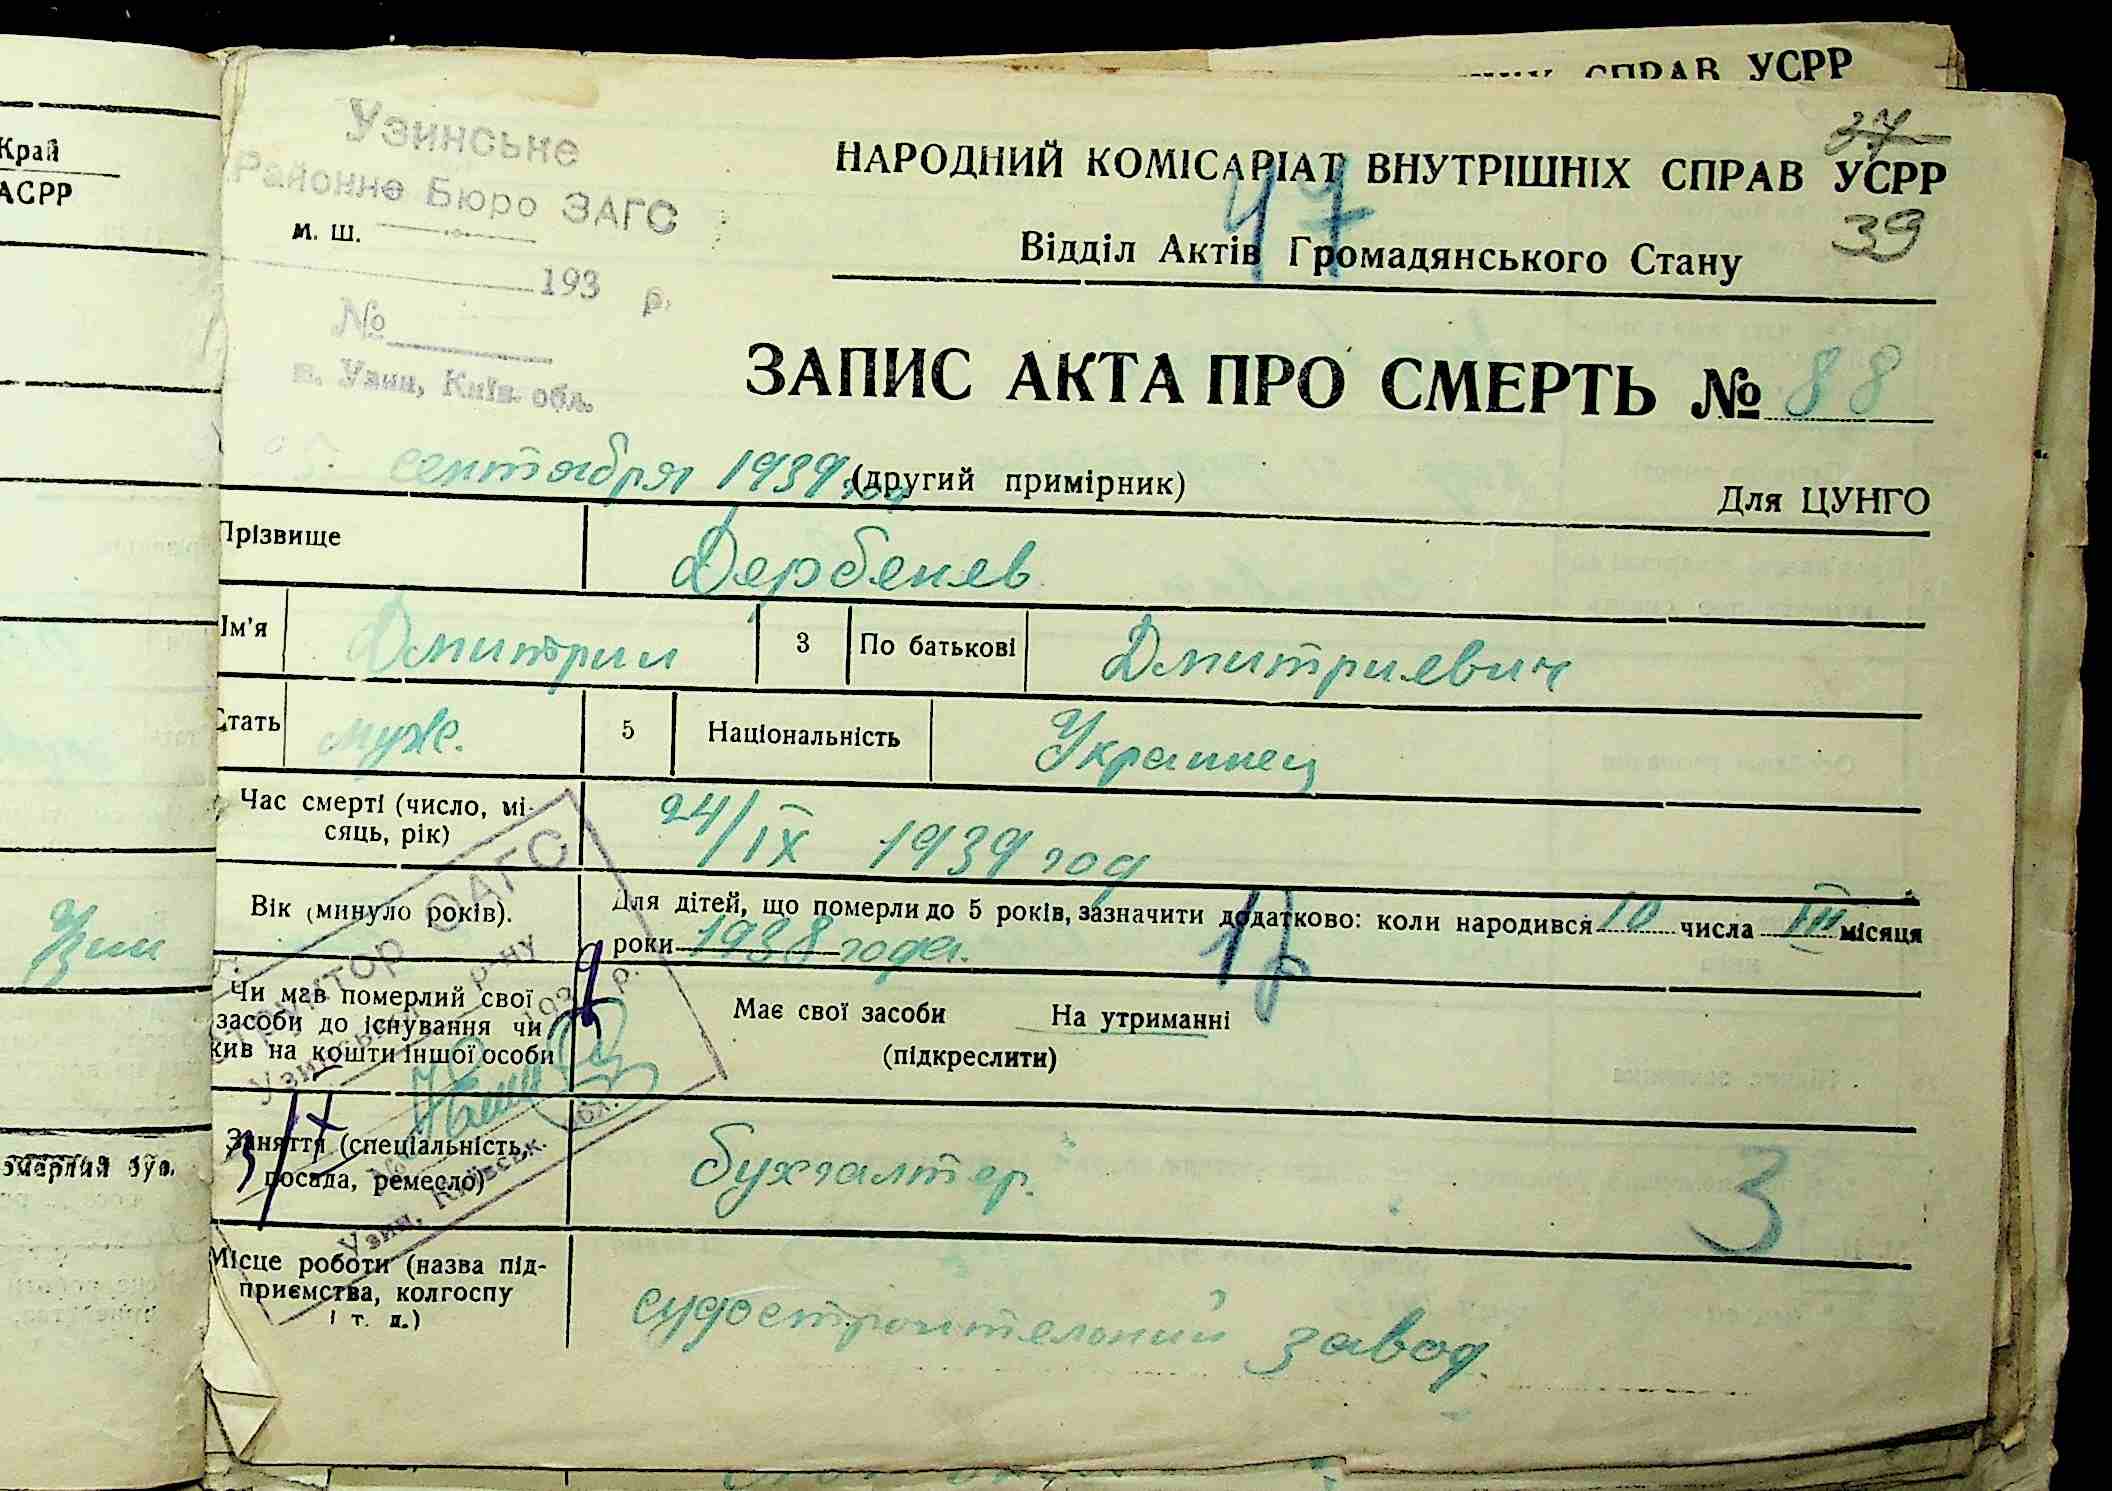 СПРАВ УСРР
Край
АСРР
Узин
Узинське
Районне Бюро ЗАГС
м. ш.
193 р.
№
м. Узин, Київ. обл.
37
НАРОДНИЙ КОМІСАРІАТ ВНУТРІШНІХ СПРАВ УСРР
47
39
Відділ Актів Громадянського Стану
ЗАПИС АКТА ПРО СМЕРТЬ № 88
25 сентября 1939 год (другий примірник)
Для ЦУНГО
Прізвище Дербенев
Ім'я Дмитрии 3 По батькові Дмитриевич
Стать муж. 5 Національність Украинец
Час смерті (число, мі-
сяць, рік)
24/IX 1939 год
Вік (минуло років).
Для дітей, що померли до 5 років, зазначити додатково: коли народився 10 числа III місяця
роки 1938 года.
Чи мав померлий свої
засоби до існування чи
жив на кошти іншої особи
Має свої засоби На утриманні
(підкреслити)
Заняття (спеціальність,
посада, ремесло)
бухгалтер.
3
Місце роботи (назва під-
приємства, колгоспу
і т. п.)
судостроительний завод.